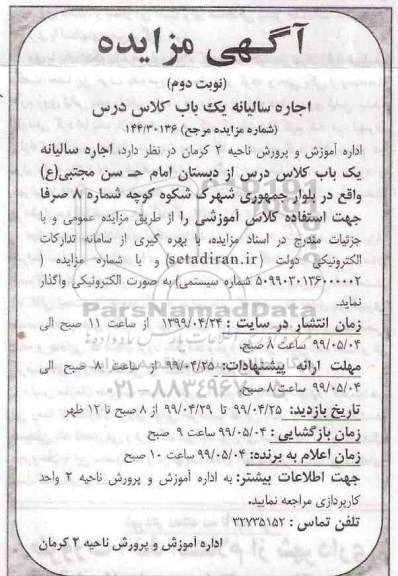 آگهی مزایده
(نوبت دوم)
اجاره سالیانه یک باب کلاس درس
(شماره مزایده مرجع) ۱۴۴/۳۰۱۳۶
اداره آموزش و پرورش ناحیه ۲ کرمان در نظر دارد، اجاره سالیانه
یک باب کلاس درس از دبستان امام حـ سن مجتبی(ع)
واقع در بلوار جمهوری شهرک شکوه کوچه شماره ۸ صرفا
جهت استفاده کلاس آموزشی را از طریق مزایده عمومی و با
جزئیات مندرج در اسناد مزایده، با بهره گیری از سامانه تدارکات
الکترونیکی دولت (setadiran.ir) و با شماره مزایده (
۵۰۹۹۰۳۰۱۳۶۰۰۰۰۰۲ شماره سیستمی) به صورت الکترونیکی واگذار
نماید.
ParsNamadData
زمان انتشار در سایت : ۱۳۹۹/۰۴/۲۴ از ساعت ۱۱ صبح الی
۹۹/۰۵/۰۴ ساعت ۸ صبح.
مهلت ارائه پیشنهادات: ۹۹/۰۴/۲۵ از ساعت ۸ صبح الی
۹۹/۰۵/۰۴ ساعت ۸ صبح.
۰۲۱-۸۸۳۴۹۶۷۰
تاریخ بازدید: ۹۹/۰۴/۲۵ تا ۹۹/۰۴/۲۹ از ۸ صبح تا ۱۲ ظهر
زمان بازگشایی : ۹۹/۰۵/۰۴ ساعت ۹ صبح
زمان اعلام به برنده: ۹۹/۰۵/۰۴ ساعت ۱۰ صبح
جهت اطلاعات بیشتر: به اداره آموزش و پرورش ناحیه ۲ واحد
کارپردازی مراجعه نمایید.
تلفن تماس : ۳۲۷۳۵۱۵۲
اداره آموزش و پرورش ناحیه ۲ کرمان